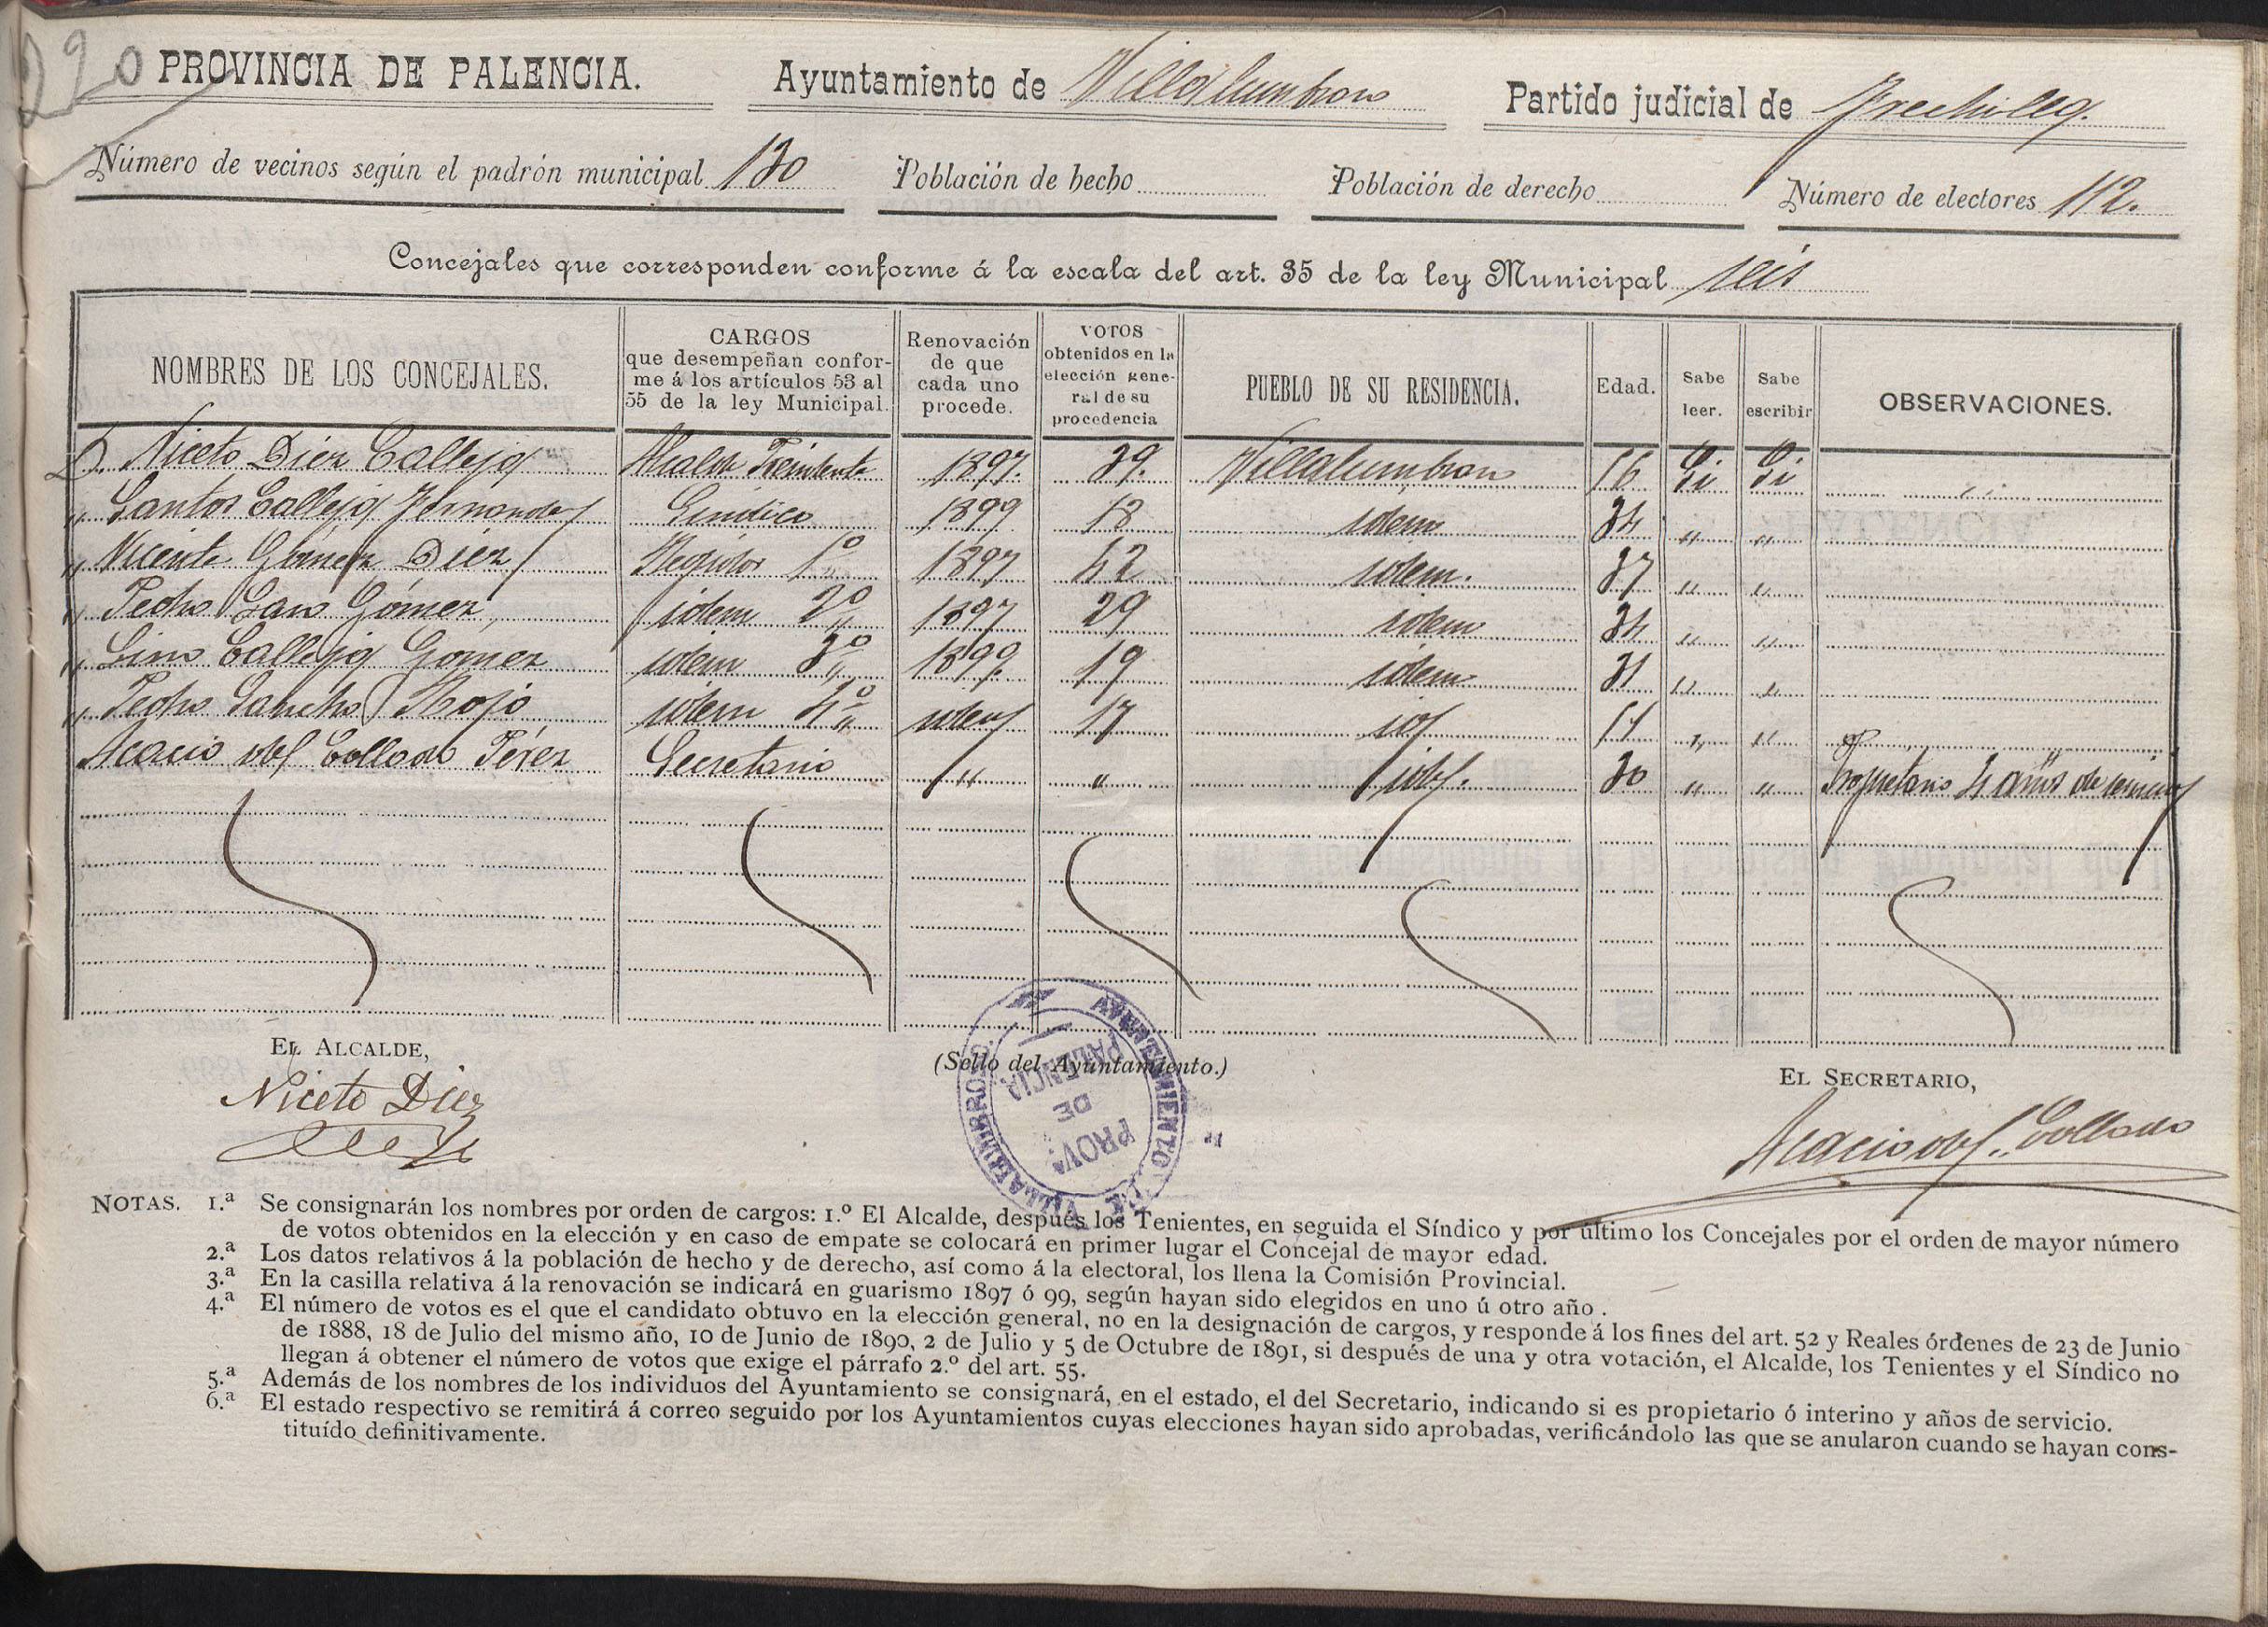 220
PROVINCIA DE PALENCIA. Ayuntamiento de Villalumbroso Partido judicial de Frechilla.
Número de vecinos según el padrón municipal 130 Población de hecho Población de derecho Número de electores 112.
Concejales que corresponden conforme á la escala del art. 35 de la ley Municipal seis
NOMBRES DE LOS CONCEJALES. CARGOS que desempeñan conforme á los artículos 53 al 55 de la ley Municipal. Renovación de que cada uno procede. VOTOS obtenidos en la elección general de su procedencia PUEBLO DE SU RESIDENCIA. Edad. Sabe leer. Sabe escribir OBSERVACIONES.
D. Niceto Diez Calleja Alcalde Presidente 1897. 39. Villalumbroso 56 Si Si
" Santos Calleja Fernandez Sindico 1899 18 idem 34 " "
" Vicente Gómez Diez Regidor 1º 1897 42 idem. 37 " "
" Pedro Caro Gómez idem 2º 1897 29 idem 34 " "
" Lino Calleja Gomez idem 3º 1899. 19 idem 31 " "
" Pedro Sancho Rojo idem 4º idem 17 id 51 " "
Acacio del Collado Pérez Secretario " " id. 30 " " Propietario 4 años de servicio
EL ALCALDE,
Niceto Diez
(Sello del Ayuntamiento.)
AYUNTAMIENTO DE VILLALUMBROSO
PROVª DE PALENCIA
EL SECRETARIO,
Acacio del Collado
NOTAS. 1.ª Se consignarán los nombres por orden de cargos: 1.º El Alcalde, después los Tenientes, en seguida el Síndico y por último los Concejales por el orden de mayor número
de votos obtenidos en la elección y en caso de empate se colocará en primer lugar el Concejal de mayor edad.
2.ª Los datos relativos á la población de hecho y de derecho, así como á la electoral, los llena la Comisión Provincial.
3.ª En la casilla relativa á la renovación se indicará en guarismo 1897 ó 99, según hayan sido elegidos en uno ú otro año.
4.ª El número de votos es el que el candidato obtuvo en la elección general, no en la designación de cargos, y responde á los fines del art. 52 y Reales órdenes de 23 de Junio
de 1888, 18 de Julio del mismo año, 10 de Junio de 1890, 2 de Julio y 5 de Octubre de 1891, si después de una y otra votación, el Alcalde, los Tenientes y el Síndico no
llegan á obtener el número de votos que exige el párrafo 2.º del art. 55.
5.ª Además de los nombres de los individuos del Ayuntamiento se consignará, en el estado, el del Secretario, indicando si es propietario ó interino y años de servicio.
6.ª El estado respectivo se remitirá á correo seguido por los Ayuntamientos cuyas elecciones hayan sido aprobadas, verificándolo las que se anularon cuando se hayan cons-
tituído definitivamente.